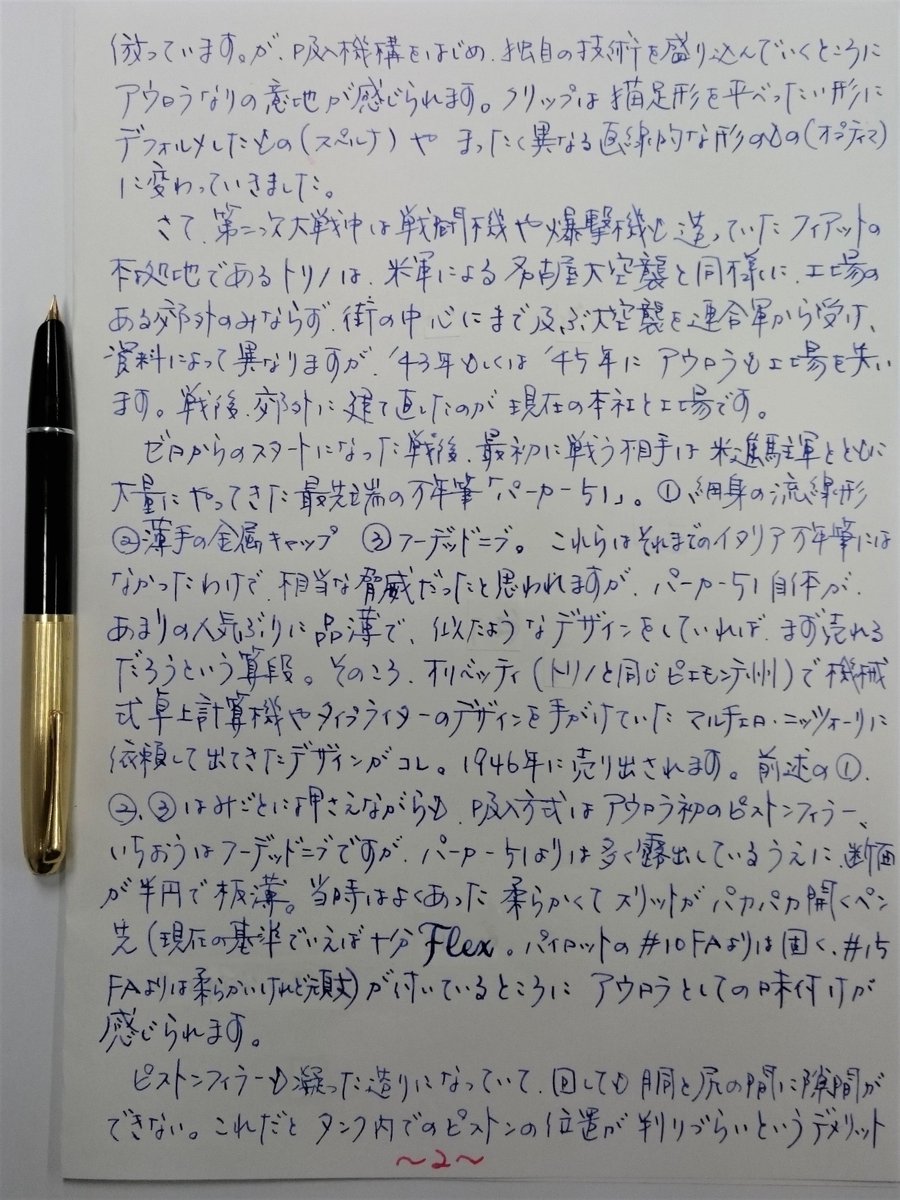 倣っています。が、吸入機構をはじめ、独自の技術を盛り込んでいくところに
アウロラなりの意地が感じられます。クリップは猫足形を平べったい形に
デフォルメしたもの(スペルナ)や まったく異なる直線的な形のもの(オプティマ)
に変わっていきました。
さて、第二次大戦中は戦闘機や爆撃機も造っていたフィアットの
本拠地であるトリノは、米軍による名古屋大空襲と同様に、工場の
ある郊外のみならず、街の中心にまで及ぶ大空襲を連合軍から受け、
資料によって異なりますが、'43年もしくは'45年にアウロラも工場を失い
ます。戦後、郊外に建て直したのが現在の本社と工場です。
ゼロからのスタートになった戦後、最初に戦う相手は米進駐軍とともに
大量にやってきた最先端の万年筆「パーカー51」。①細身の流線形
②薄手の金属キャップ ③フーデッドニブ。これらはそれまでのイタリア万年筆には
なかったわけで、相当な脅威だったと思われますが、パーカー51自体が、
あまりの人気ぶりに品薄で、似たようなデザインをしていれば、まず売れる
だろうという算段。そのころ、オリベッティ(トリノと同じピエモンテ州)で機械
式卓上計算機やタイプライターのデザインを手がけていたマルチェロ・ニッツォーリに
依頼して出てきたデザインがコレ。1946年に売り出されます。前述の①、
②、③はみごとに押さえながらも、吸入方式はアウロラ初のピストンフィラー、
いちおうはフーデッドニブですが、パーカー51よりは多く露出しているうえに、断面
が半円で板薄。当時はよくあった柔らかくてスリットがパカパカ開くペン
先(現在の基準でいえば十分Flex。パイロットの#10FAよりは固く、#15
FAよりは柔らかいけれど頑丈)が付いているところにアウロラとしての味付けが
感じられます。
ピストンフィラーも凝った造りになっていて、回しても胴と尻の間に隙間が
できない。これだとタンク内でのピストンの位置が判りづらいというデメリット
～2～